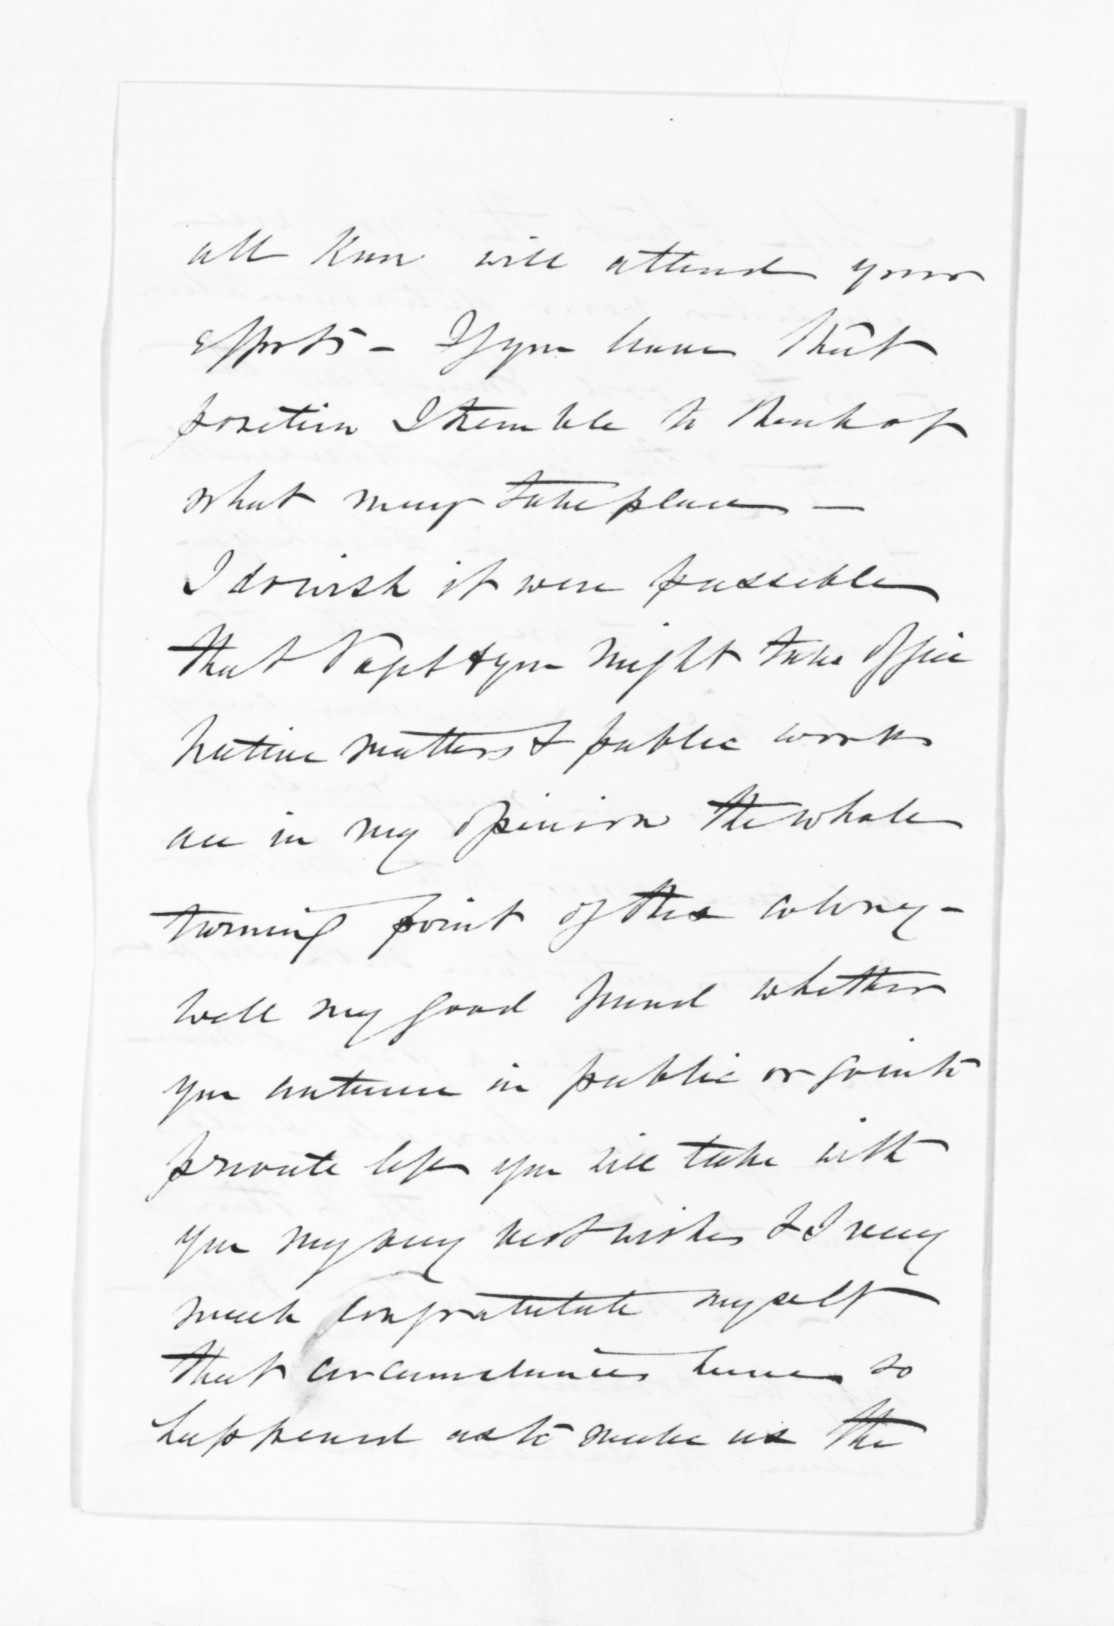 all know will attend your
efforts - If you leave that
position I tremble to think of
what may take place -
I do wish it were possible
that & you might take office
Native matters & public works
are in my opinion the whole
turning point of this colony -
Well my good friend whether
you continue in public or go into
private life you will take with
you my very best wishes & I very
much congratulate myself
that circumstances have so
happened as to make us the